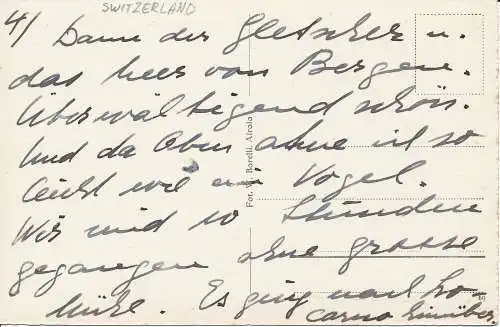 SWITZERLAND
4/ Dann der Gletscher u.
das Meer von Bergen.
Überwältigend schön.
Und da oben atme ich so
leicht wie ein Vogel.
Wir sind 10 Stunden
gegangen ohne grosse
Mühe. Es ging nach Lo-
carno hinüber.
Fot. M. Borelli, Airolo